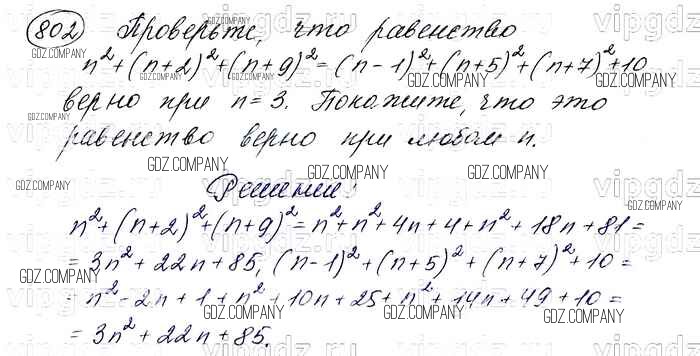 802 Проверьте, что равенство
n²+(n+2)²+(n+9)²=(n-1)²+(n+5)²+(n+7)²+10
верно при n=3. Покажите, что это
равенство верно при любом n.
Решение:
n²+(n+2)²+(n+9)²=n²+n²+4n+4+n²+18n+81=
=3n²+22n+85, (n-1)²+(n+5)²+(n+7)²+10=
=n²-2n+1+n²+10n+25+n²+14n+49+10=
=3n²+22n+85.